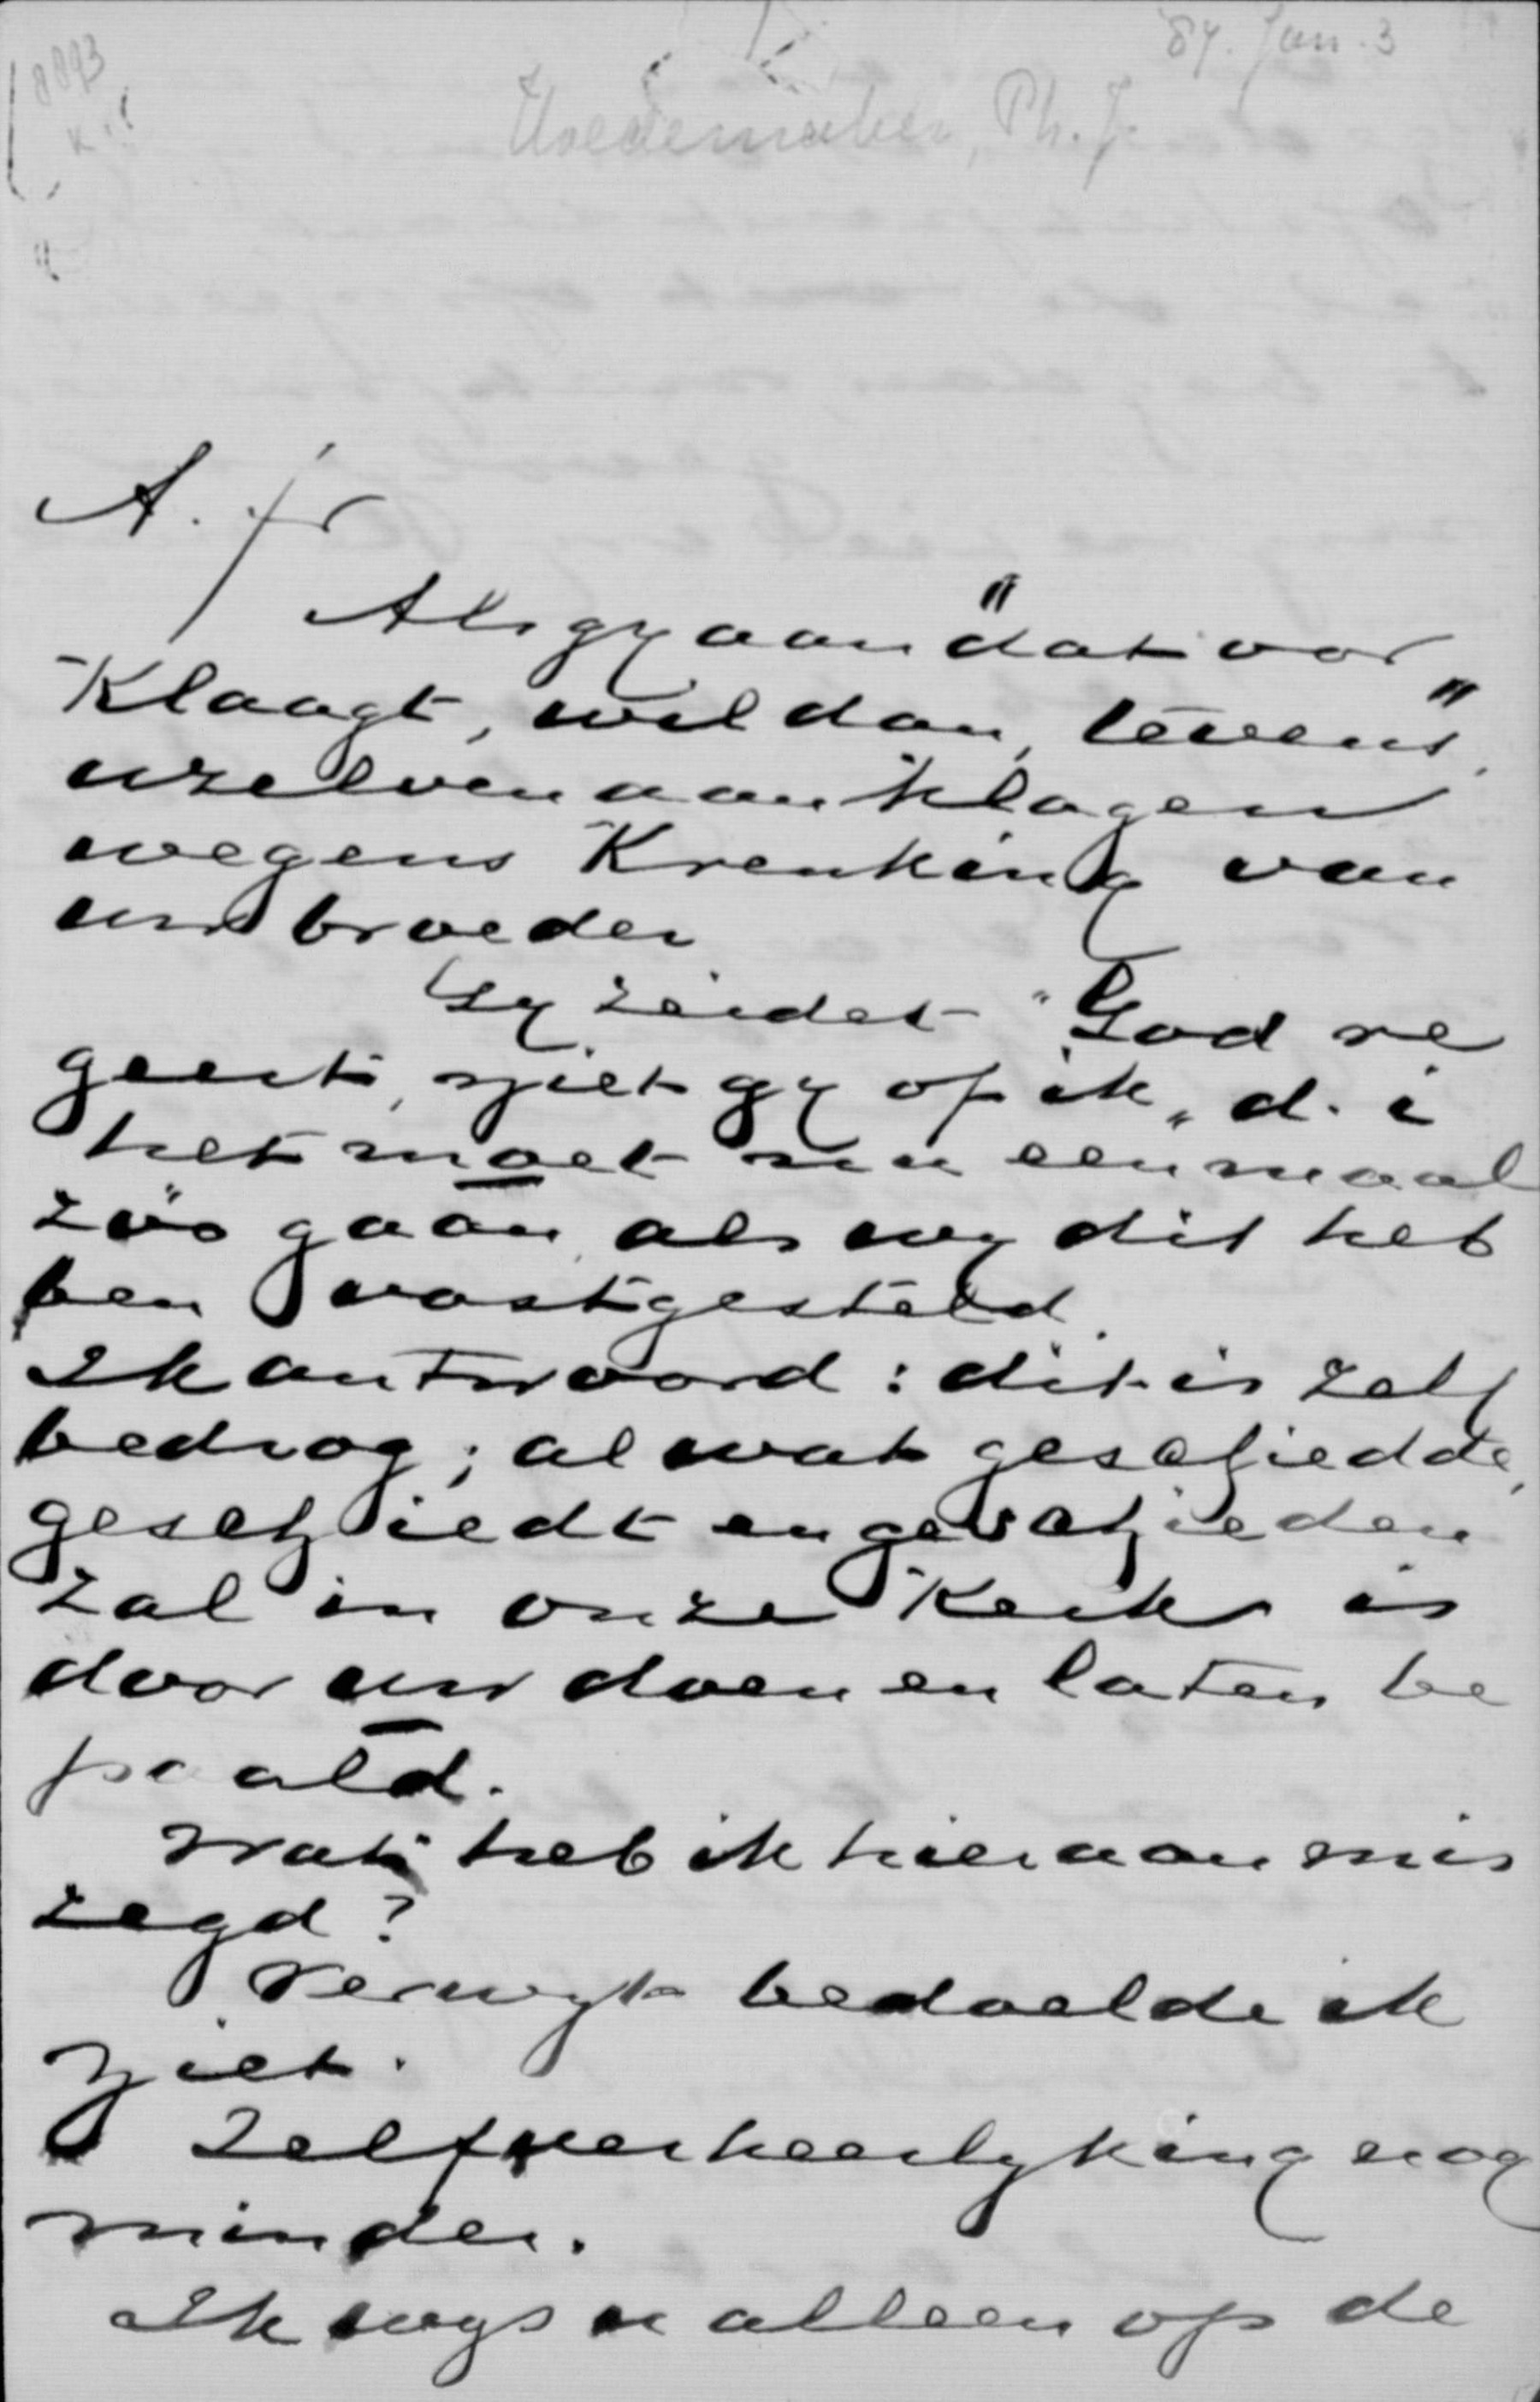 '87. Jan. 3
8893
Hoedemaker, Ph. J.
A. fr
Als gy aan "dat voor
Klaagt, wil dan, tevens"
uzelven aanklagen
wegens Krenking van
uw broeder
Gy zeidet "God re
geert, niet gy of ik" d. i
het moet nu eenmaal
zóó gaan, als wy dit heb
ben vastgesteld.
Ik antwoord: dit is zelf
bedrog; al wat geschiedde,
geschiedt en geschieden
zal in onze Kerk is
door uw doen en laten be
paald.
Wat heb ik hieraan mis
zegd?
Verwyt bedoelde ik
niet.
Zelfverheerlyking nog
minder.
Ik wys u alleen op de